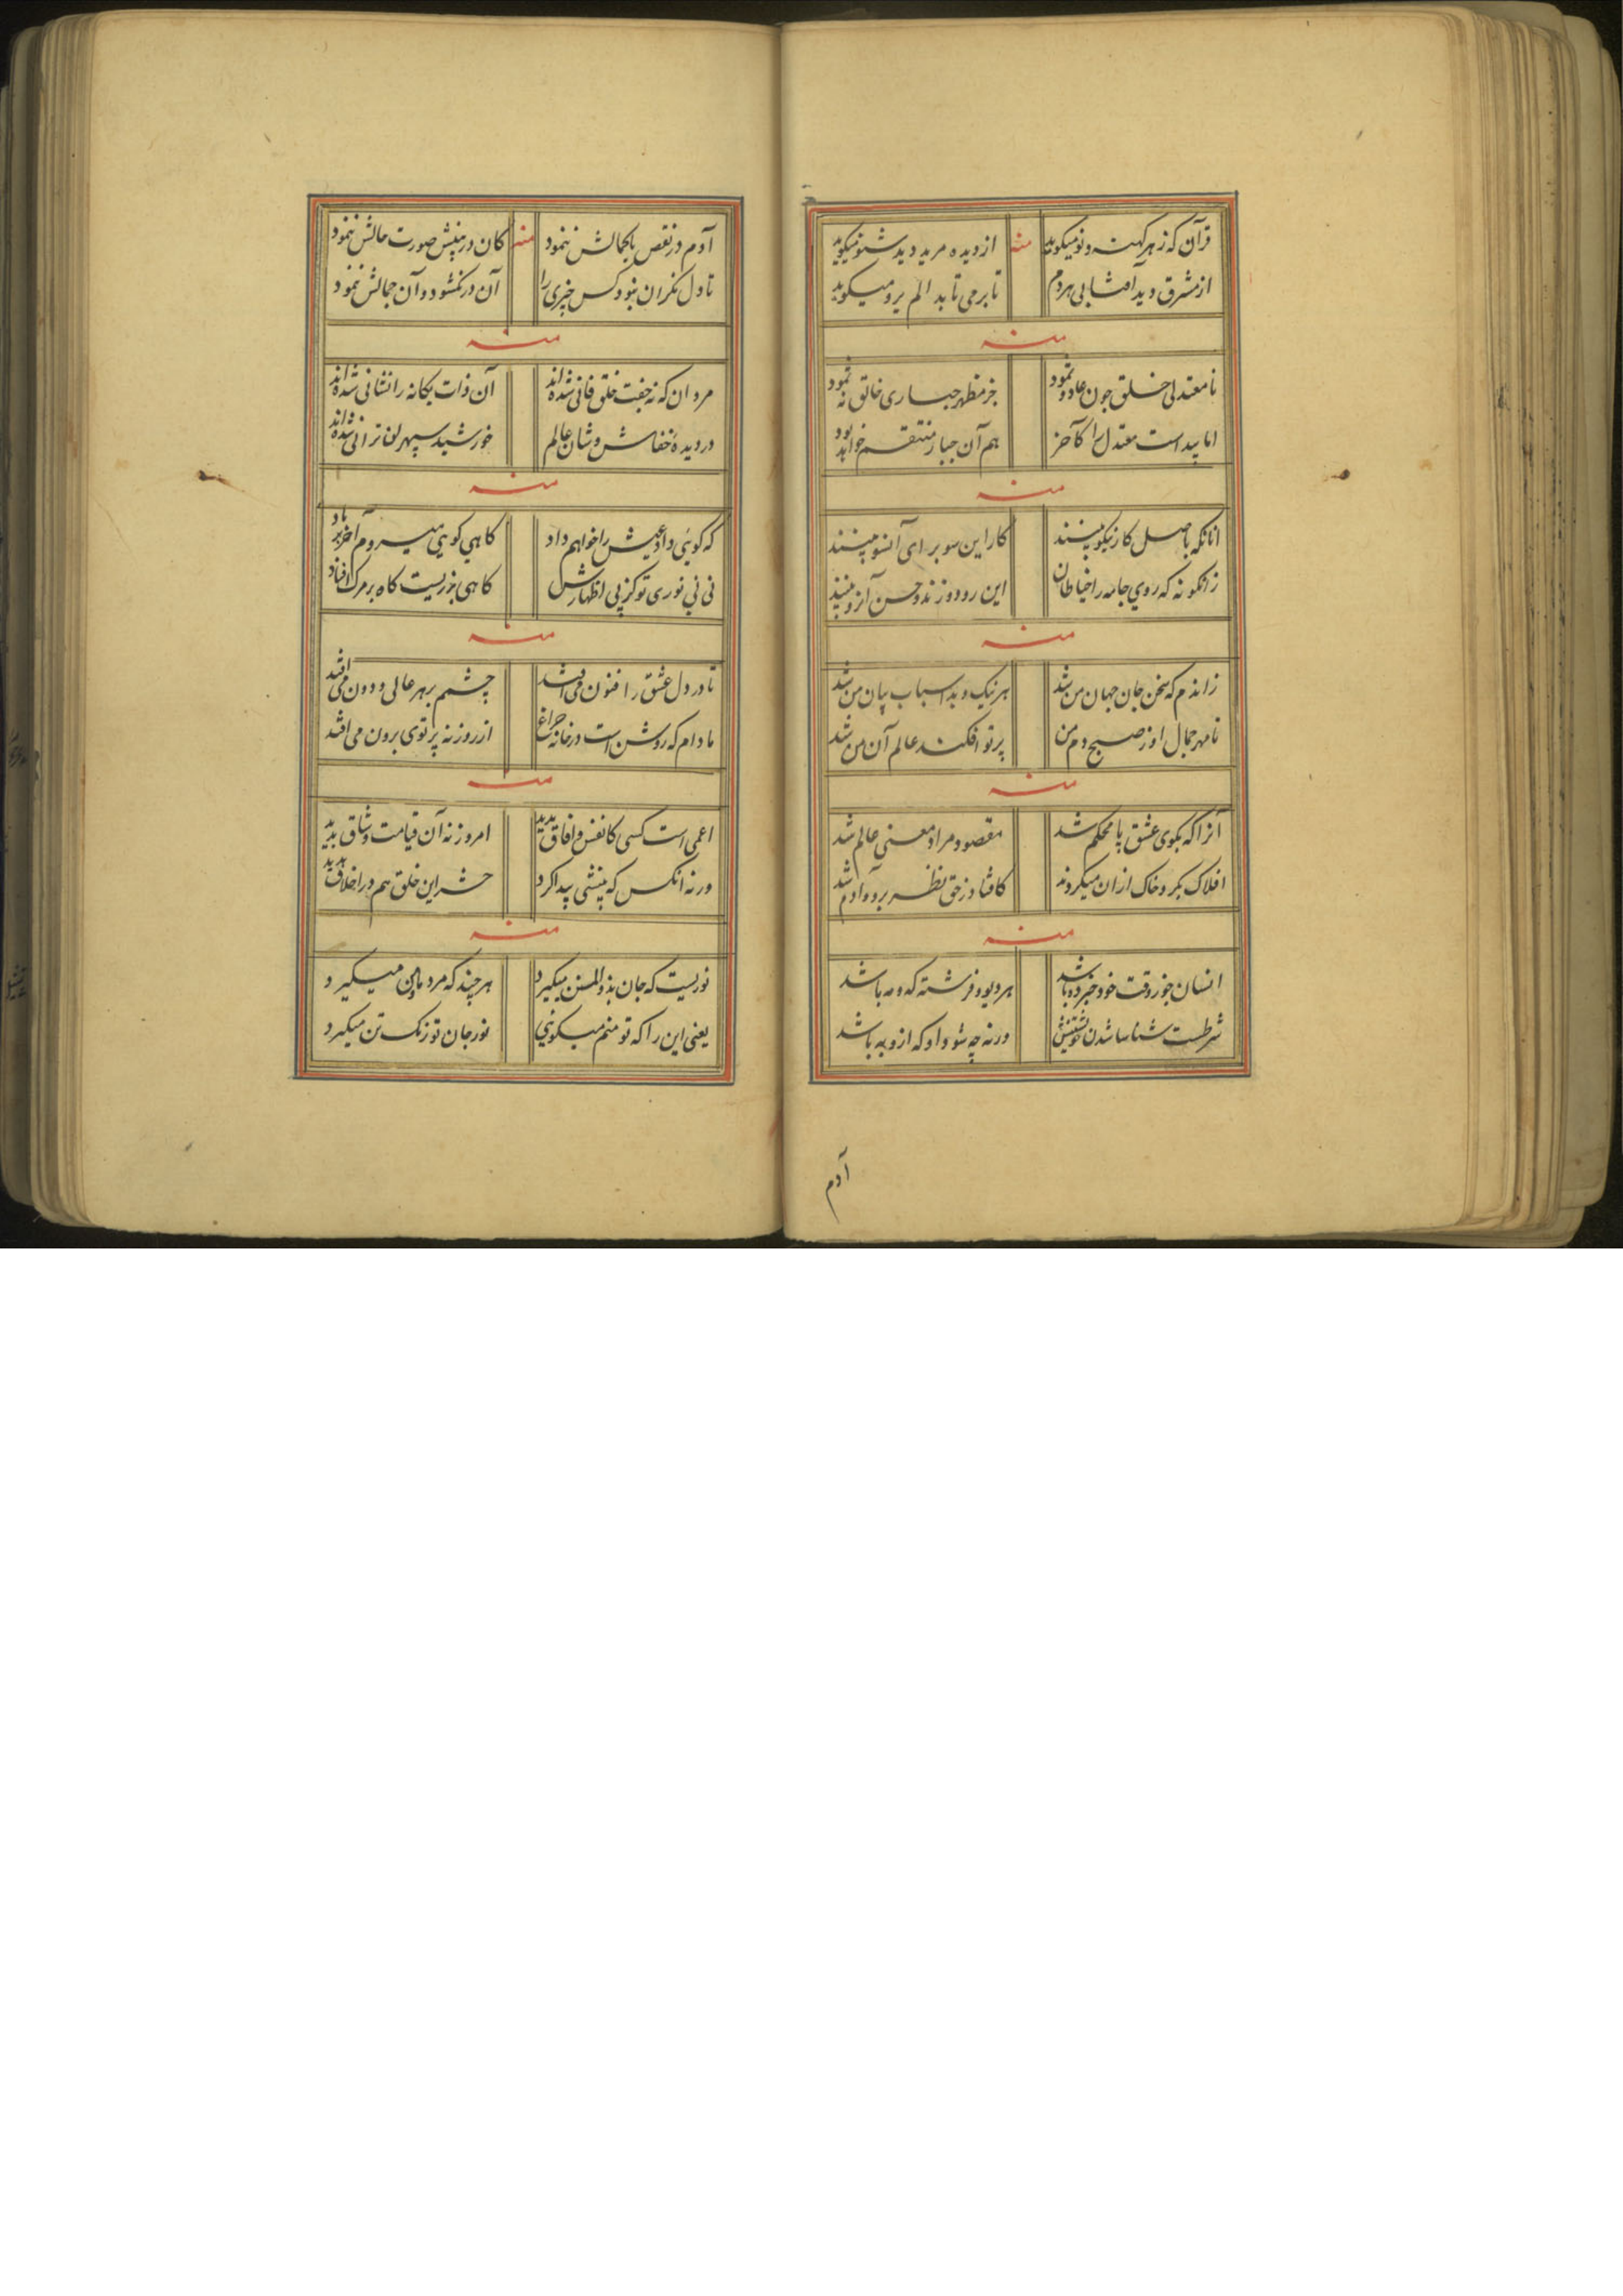 قرآن که ز هر کهنه و نو میکوید
منه
از دیده مرید دید شنو میکوید
از مشرق دید آفتابی هر دم
تا بر می تابد الم یرو میکوید
منه
نامعتدلی خلق چون عاد و ثمود
جز مظهر جباری خالق نه نمود
اما پیداست معتدل را کآخر
هم آن جبار منتقم خواهد بود
منه
انانکه باصل کار نیکو بینند
کار این سو برای آنسو بینند
زانکونه که روی جامه را خیاطان
این رو دوزند و حسن آنرو بینند
منه
زاندم که سخن جان جهان من شد
هر نیک و بد اسباب بیان من شد
تا مهر جمال او ز صبح دم من
پرتو افکند عالم آن من شد
منه
آنرا که بکوی عشق پا محکم شد
مقصود و مراد معنی عالم شد
افلاک بکرد خاک ازان میکردند
کافتاد ز حق نظر برو و آدم شد
منه
انسان جو ز وقت خود خبرده باشد
هر دیو و فرشته که و مه باشد
شرطست شناسا شدن خویشتنش
ورنه چه شود او که ازو به باشد
آدم
آدم در نقص با کمالش ننمود
منه
کان در بینش صورت حالش ننمود
تا دل نکران نبود کس چیزی را
آن در نکشود و آن جمالش ننمود
منه
مردان که نه جفت خلق فانی شده اند
آن ذات یکانه را نشانی شده اند
در دیدهٔ خفاش وشان عالم
خورشید سپهر لن ترانی شده اند
منه
که کوئی داد عیش را خواهم داد
کاهی کویی میروم آخر بر باد
نی نی نوری تو کز پی اظهارش
کاهی بر زیست کاه بر مرک افتاد
منه
تا در دل عشق را فنون می افتد
چشم بر هر عالی و دون می افتد
مادام که روشن است در خانه چراغ
از روزنه پرتوی برون می افتد
منه
اعمی است کسی کانفس و افاق ندید
امروز نه آن قیامت و شاق بدید
ورنه انکس که بینشی پیدا کرد
حشر این خلق هم در اخلاق بدید
منه
نوریست که جان بذوالمنن میکیرد
هر چند که مرد ما و من میکیرد
یعنی این را که تو منم میکوئی
نور جان تو رنک تن میکیرد